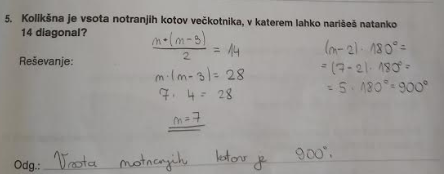 5. Kolikšna je vsota notranjih kotov večkotnika, v katerem lahko narišeš natanko
14 diagonal?
Reševanje:
n·(n-3)/2 = 14
n·(n-3) = 28
7 · 4 = 28
n=7
(n-2)·180°=
=(7-2)·180°=
= 5 · 180°=900°
Odg.: Vsota notranjih kotov je 900°.